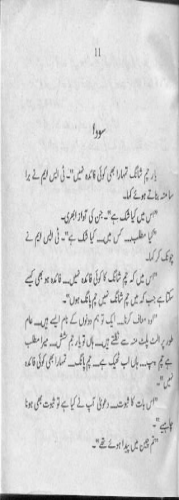 11
سودا!
"یار تم شانگ تمہارا بھی کوئی فائدہ نہیں"۔ ٹی ایس ایم نے برا
سا منہ بناتے ہوئے کہا۔
"اس میں کیا شک ہے"۔ جن کی آواز ابھری۔
"کیا مطلب... کس میں... کیا شک ہے"۔ ٹی ایس ایم نے
چونک کر کہا۔
"اس میں کہ تم شانگ کا کوئی فائدہ نہیں... فائدہ ہو بھی کیسے
سکتا ہے جب کہ میں تم شانگ نہیں تم پانگ ہوں"۔
"اوہ معاف کرنا... ایک تو تم دونوں کے نام ایسے ہیں... عام
طور پر الٹ پلٹ منہ سے نکلتے ہیں... ہاں تو یار تم شش... میرا مطلب
ہے تم پپ... ہاں اب ٹھیک ہے... تم پانگ... تمہارا بھی کوئی فائدہ
نہیں"۔
"اس بات کا ثبوت... دعویٰ آپ نے کیا ہے تو ثبوت بھی ہونا
چاہیے"۔
"تم چین میں پیدا ہوئے تھے"۔